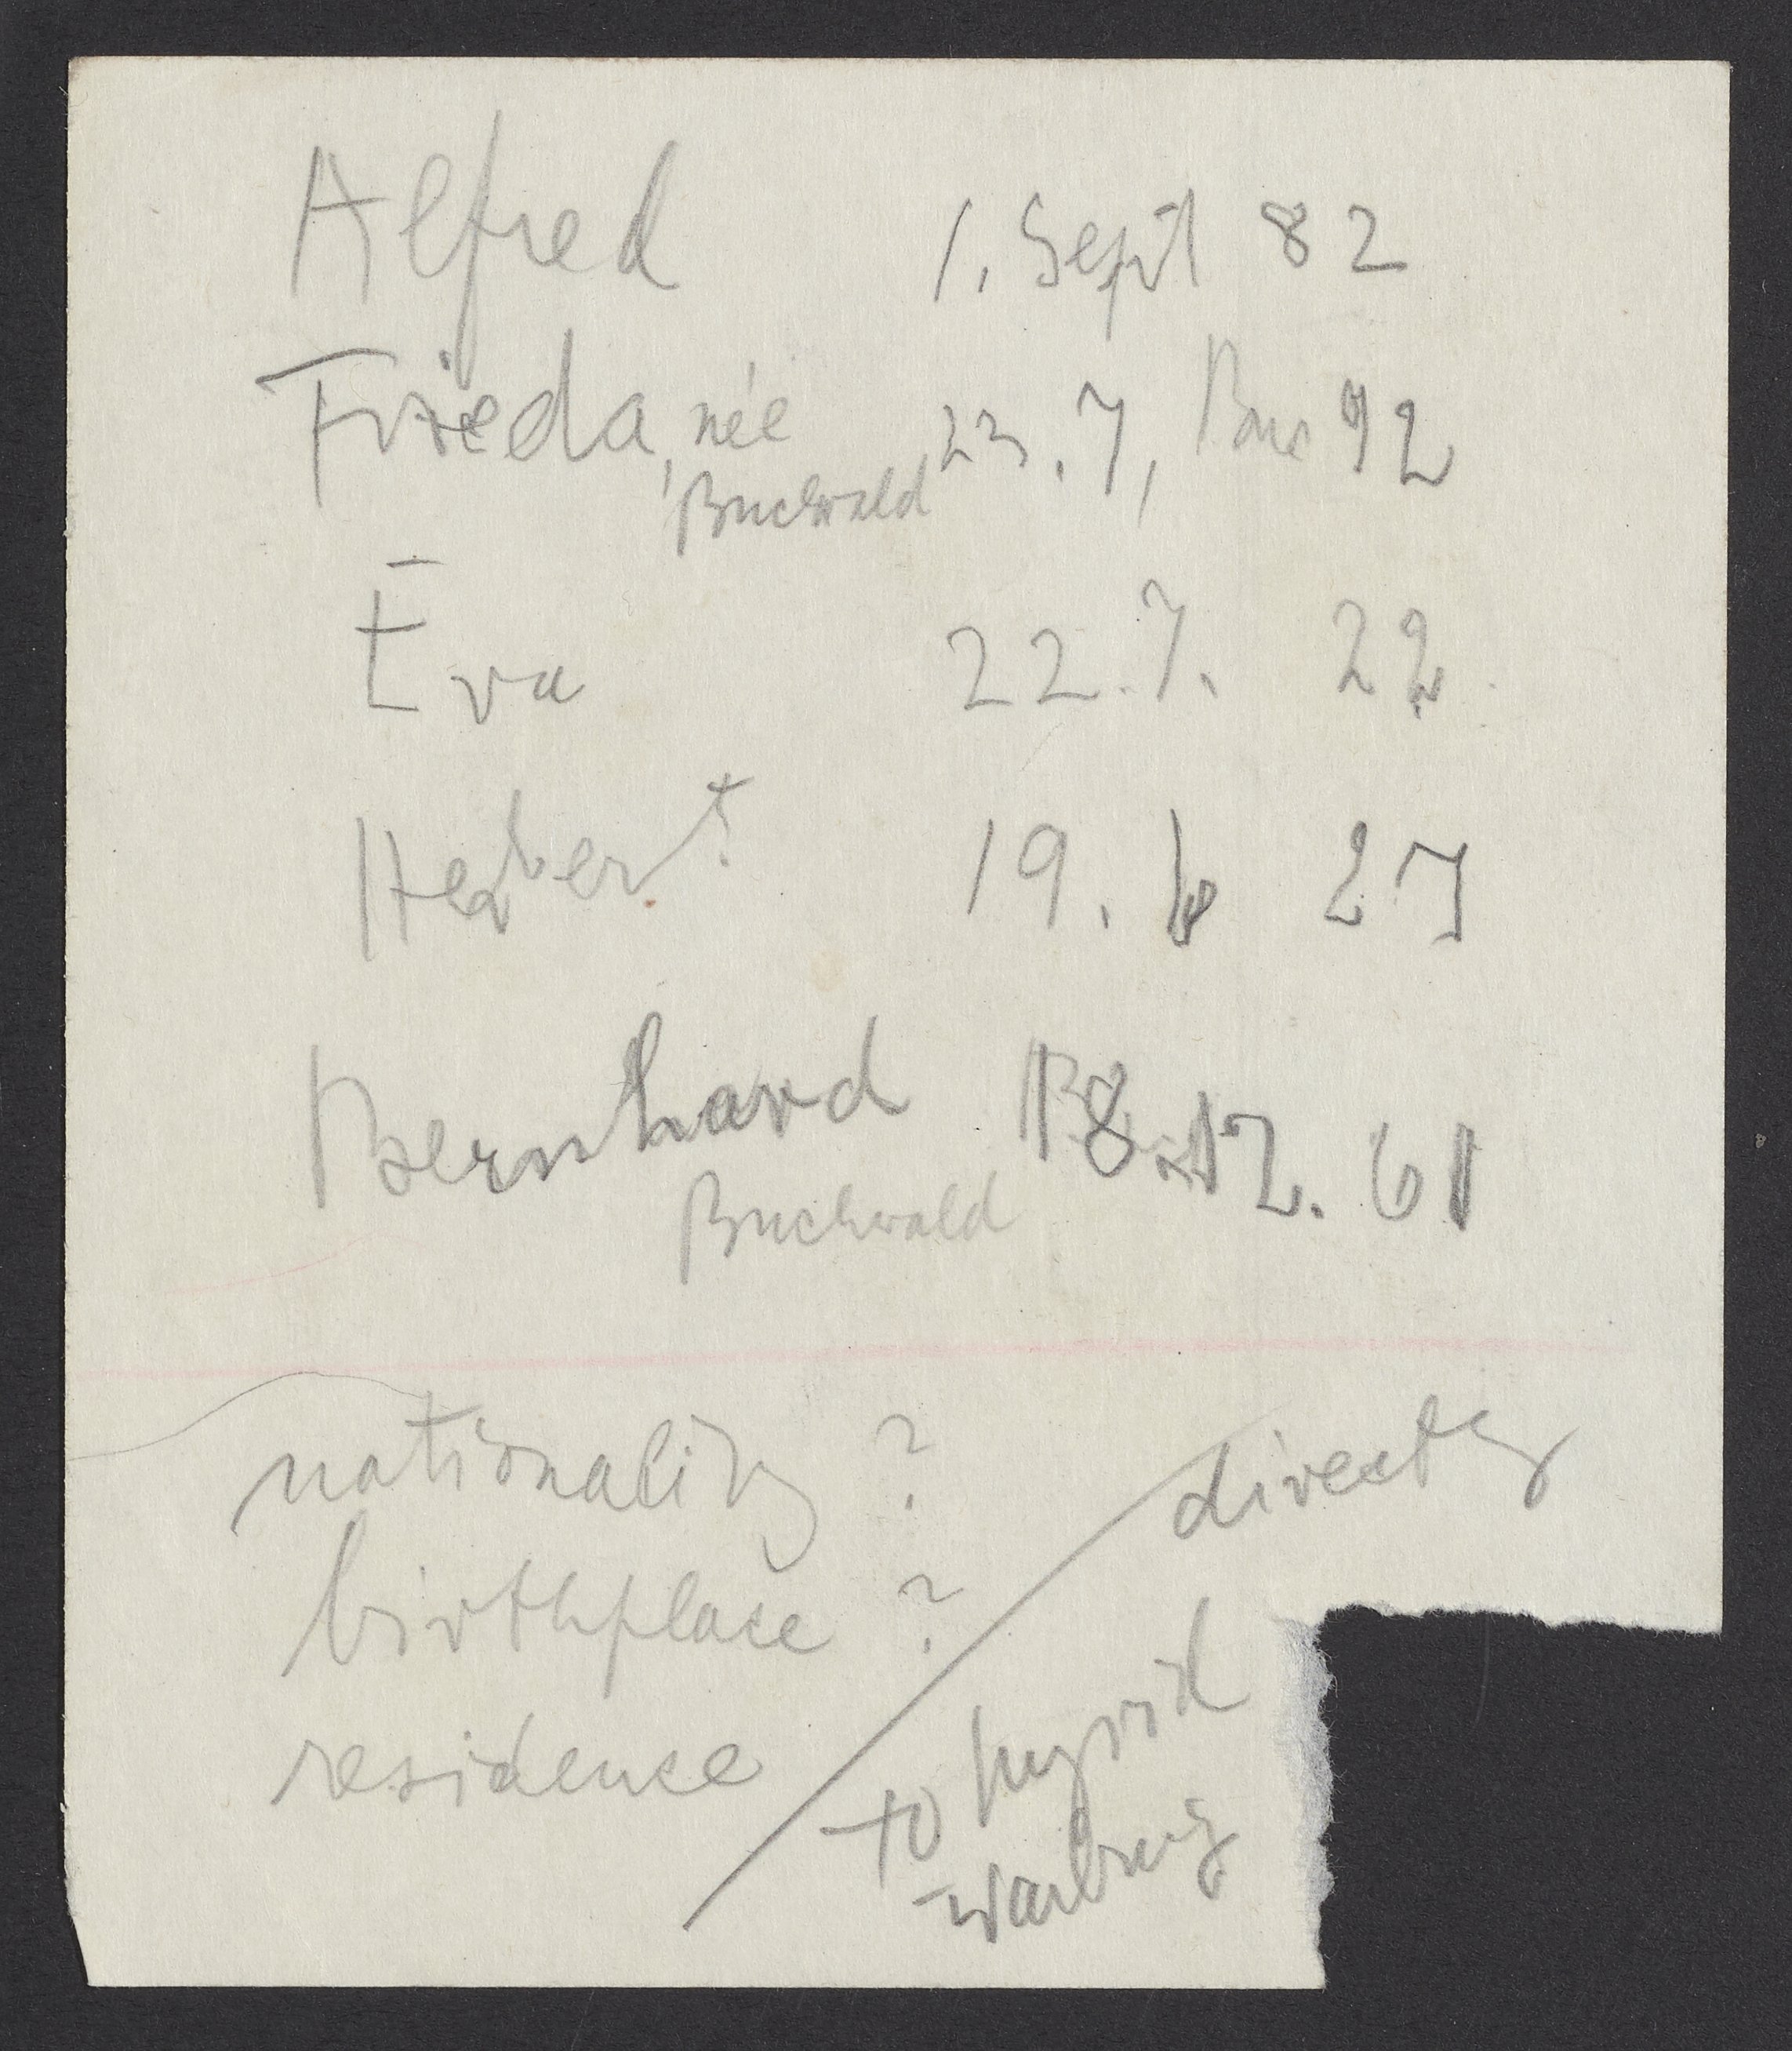 Alfred 1. Sept 82
Frieda, née 23.7, 92
Buchwald
Eva 22.7. 22
Herbert 19. 27
Bernhard 18.12. 61
Buchwald
nationality ?
directly
birthplace ?
residence
to Ingrid
Warburg